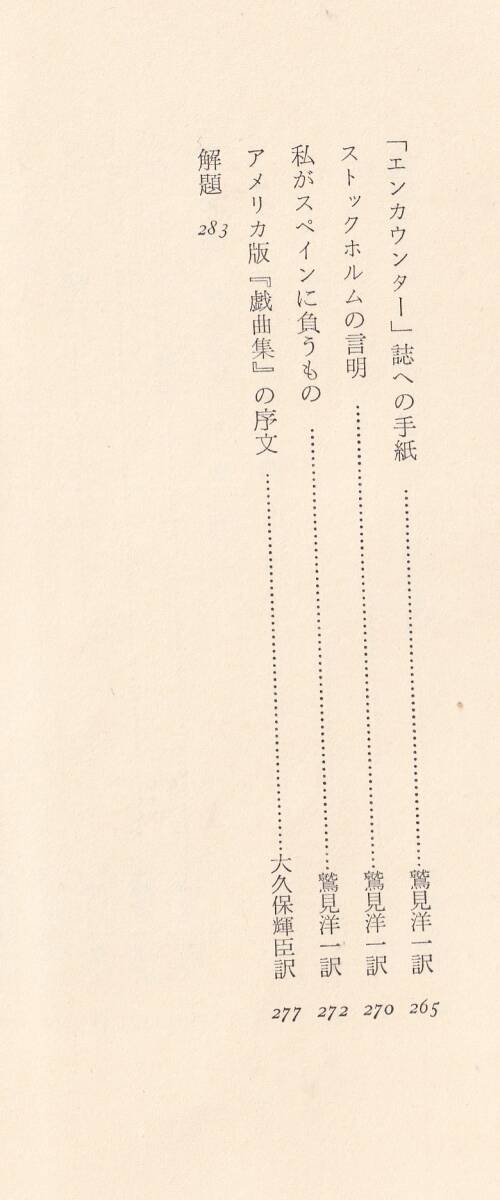 「エンカウンター」誌への手紙……………………鷲見洋一訳 265
ストックホルムの言明……………………鷲見洋一訳 270
私がスペインに負うもの……………………鷲見洋一訳 272
アメリカ版『戯曲集』の序文……………………大久保輝臣訳 277
解題 283